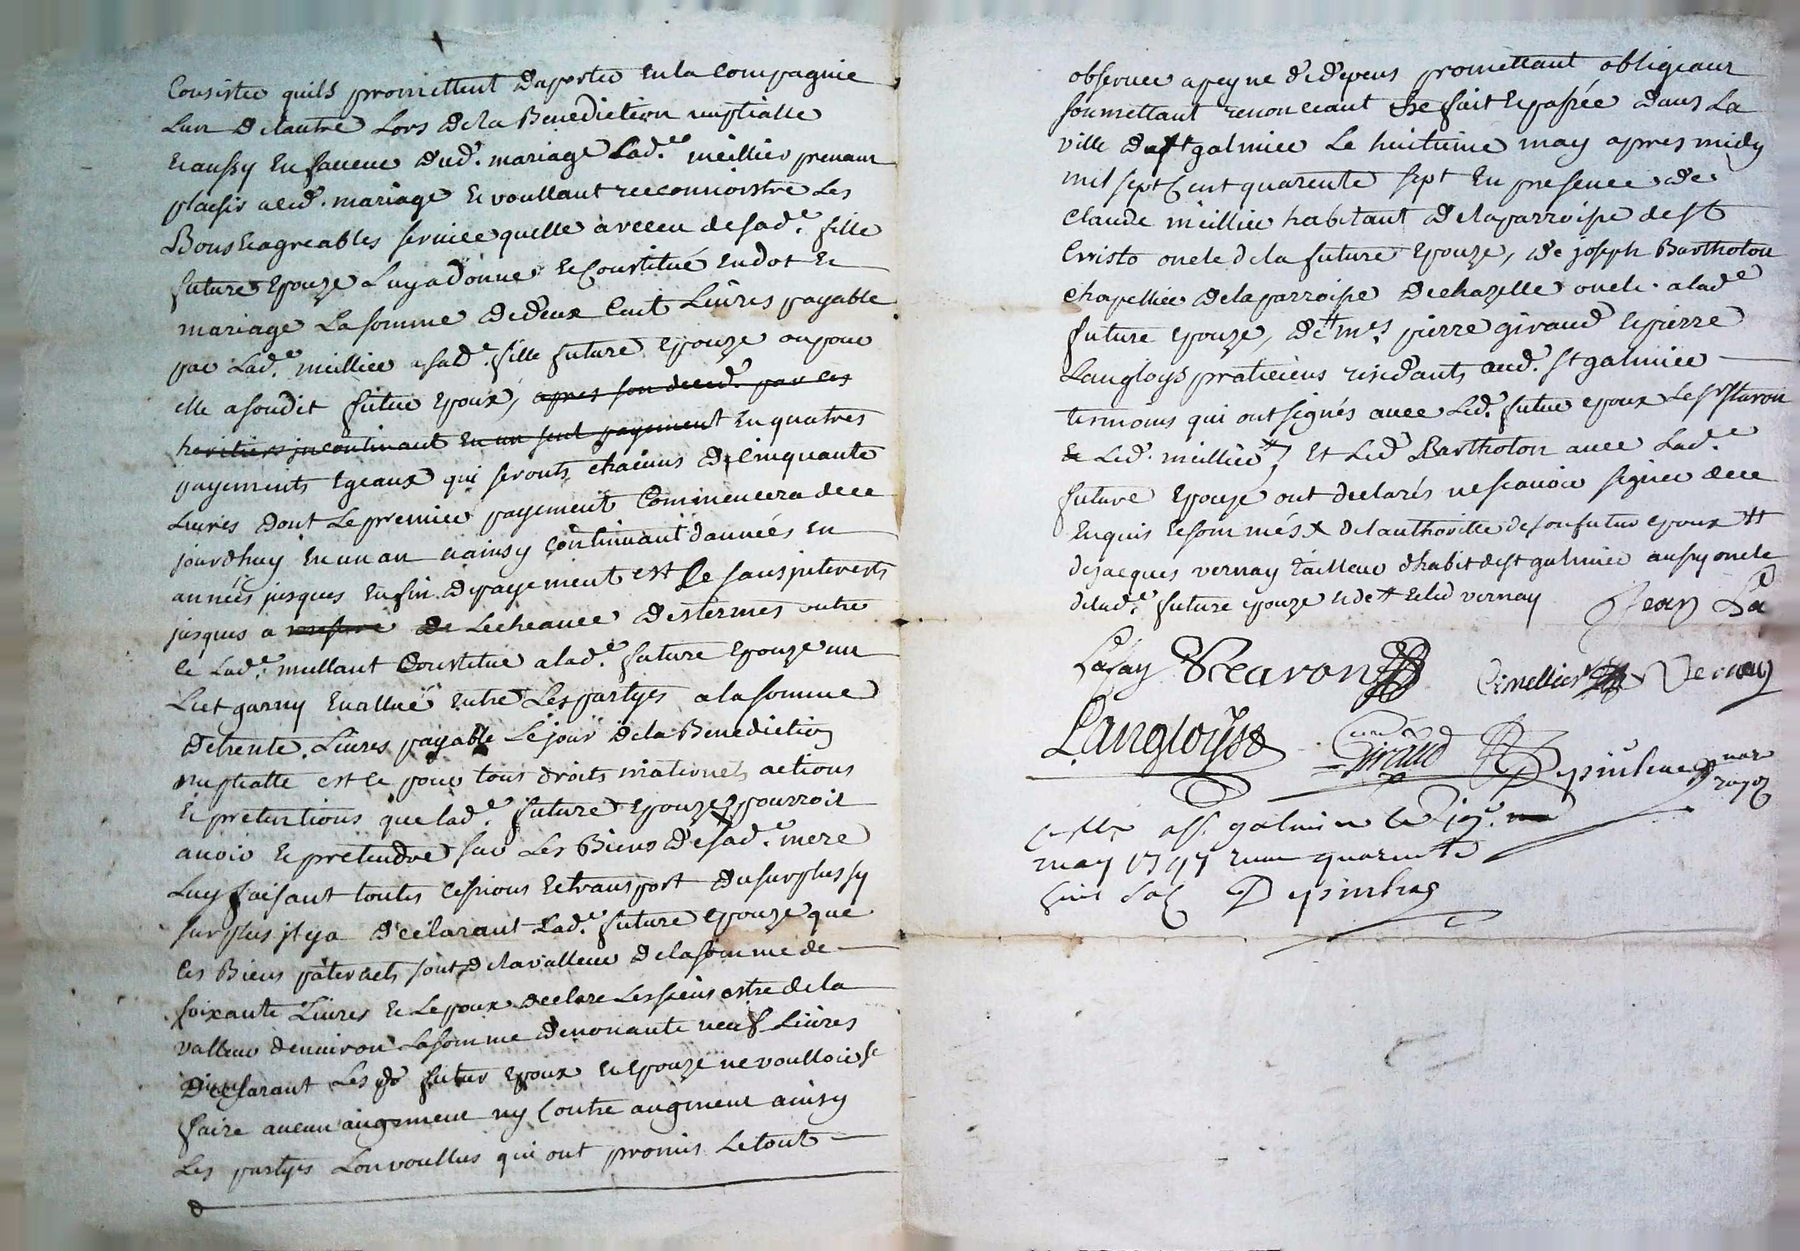 Consister quils promettent daporter en la compagnie
Lun de lautre Lors de la Benediction nuptialle
et aussy en faveur dud. mariage Lad.e meillier prenant
plaisir aud. mariage et voullant reconnoistre Les
Bons et agreables service quelle a receu de sad.e fille
future epouze Luy a donné et Constitué en dot et
mariage La somme de deux Cent Livres payable
par Lad.e meillier a sad.e fille future epouze ou pour
elle a soudit futur epoux, apres son deced. par ses
heritiers incontinant en un seul payement En quatres
payements egeaux qui seronts chacuns de Cinquante
Livres dont Le premier payement Commencera de ce
jourdhuy en un an et ainsy continuant dannées en
années jusques En fin de payement est Ce sans interests
jusques a de Lecheance des termes outre
ce Lad.e meillant Constitue a lad.e future epouze un
Lict garny Evallué entre Les partyes a la somme
de trente Livres payable Le jour de la Benediction
nuptialle est ce pour tous droits maternels actions
et pretentions que lad.e future epouze pourroit
avoir et pretendre sur Les Biens de sad.e mere
Luy faisant toutes cessions et transport du surplus sy
surplus jl y a déclarant Lad.e future epouze que
ses Biens paternels sont de la valleur de la somme de
soixante Livres et Lepoux declare Les siens estre de la
valleur denviron La somme de nonante neuf Livres
Declarant Les futur epoux et Epouze ne voulloir se
faire aucun augment ny Contre augment ainsy
Les partyes Lon voullus qui ont promis Le tout
observer a peyne de depens promettant obligeant
soumettant renonceant fait et passée dans La
ville de st galmier Le huitieme may apres midy
mil sept Cent quarente sept En presence de
Claude meillier habitant de la parroisse de st
Cristo oncle de la future epouze, de joseph Bartholon
chapellier de la parroisse de chazelle oncle a lad.e
future epouze, de mes pierre giraud et pierre
Langloys praticiens residants aud. st galmier
temoins qui ont signés avec Led. futur epoux Le sr staron
et Led. meillier et Led Bartholon avec Lad.e
future epouze ont declarés ne scavoir signer de ce
Enquis et sommés de lauthoritté de son futur epoux
de jacques vernay tailleur dhabit de st galmier aussy oncle
de lad.e future epouze et led vernay Jean La
Lafay Staron C meillier Vernay
Langloys Giraud Depinhac nore
royal
galmier le
may 1747 quarente
six sols Depinhac